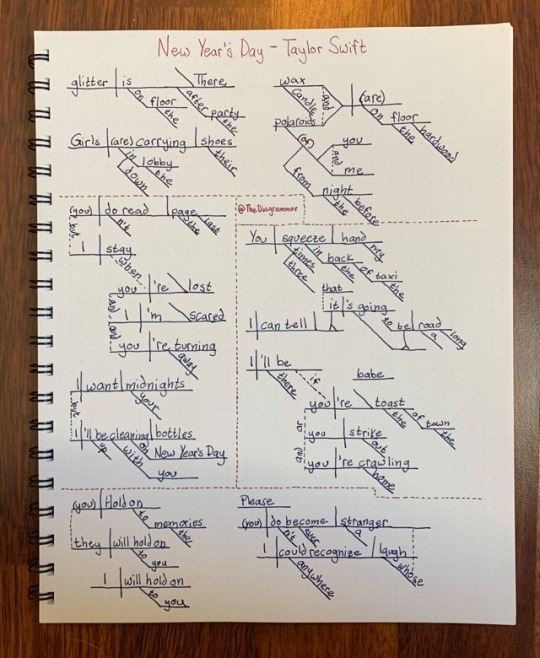 New Year's Day - Taylor Swift
glitter is There
on floor the
after party the
Girls (are) carrying shoes their
in lobby the
down
wax and (are)
candle
polaroids on floor the hardwood
(of) you
and
me
from night the before
(you) do read page the last
n't
but
I stay
when
you 're lost
and
I 'm scared
and
you 're turning
away
I want midnights
your
but
I 'll be cleaning bottles
up with on New Year's Day
you
@TheDiagrammer
You squeeze hand my
times three in back the of taxi the
that
it 's going
I can tell to be road a long
I 'll be
there if babe
you 're toast the of town the
or
you strike
out
and
you 're crawling
home
(you) Hold on
to memories
the
they will hold on
to you
I will hold on
to you
Please
(you) do become stranger
n't ever a
I could recognize laugh
anywhere whose